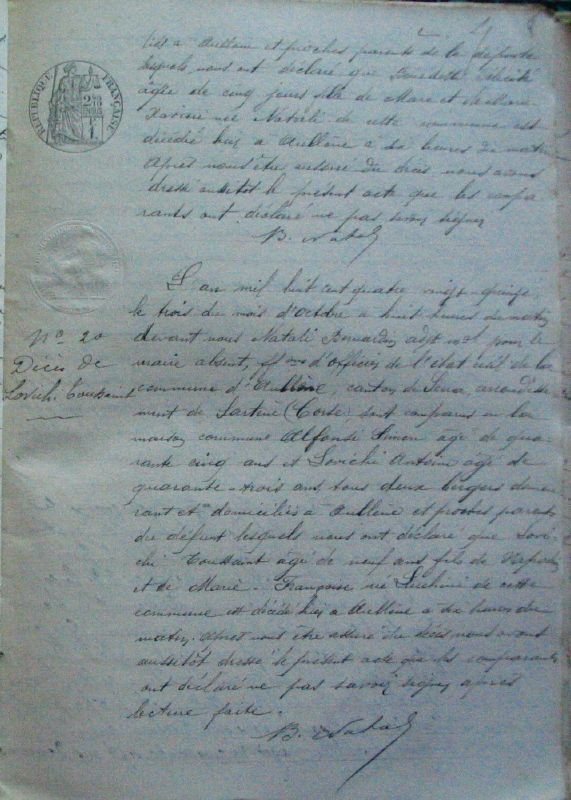 RÉPUBLIQUE FRANÇAISE
à Aullène et proches parents de la défunte
lesquels nous ont déclaré que Benedetti Félicité
âgée de cinq jours fille de Marc et de Marie
Xavière née Natali de cette commune est
décédée hier à Aullène à six heures du matin
Après nous être assuré du décès nous avons
dressé aussitôt le présent acte que les compa
rants ont déclaré ne pas savoir signer
B. Natali
L'an mil huit cent quatre vingt-quinze,
le trois du mois d'octobre à huit heures du matin
N° 20
Décès de
Lovichi Toussaint
devant nous Natali Bernardin adjt mal pour le
maire absent, ff ons d'officier de l'état civil de la
commune d'Aullène, canton de Serra arrondisse
ment de Sartène (Corse), sont comparus en la
maison commune Alfonsi Simon âgé de qua
rante cinq ans et Lovichi Antoine âgé de
quarante-trois ans tous deux bergers demeu
rant et domiciliés à Aullène et proches parents
du défunt lesquels nous ont déclaré que Lovi
chi Toussaint âgé de neuf ans fils de
et de Marie-Françoise née Luchini de cette
commune est décédé hier à Aullène à dix heures du
matin. Après nous être assuré du décès nous avons
aussitôt dressé le présent acte que les comparants
ont déclaré ne pas savoir signer après
lecture faite.
B. Natali